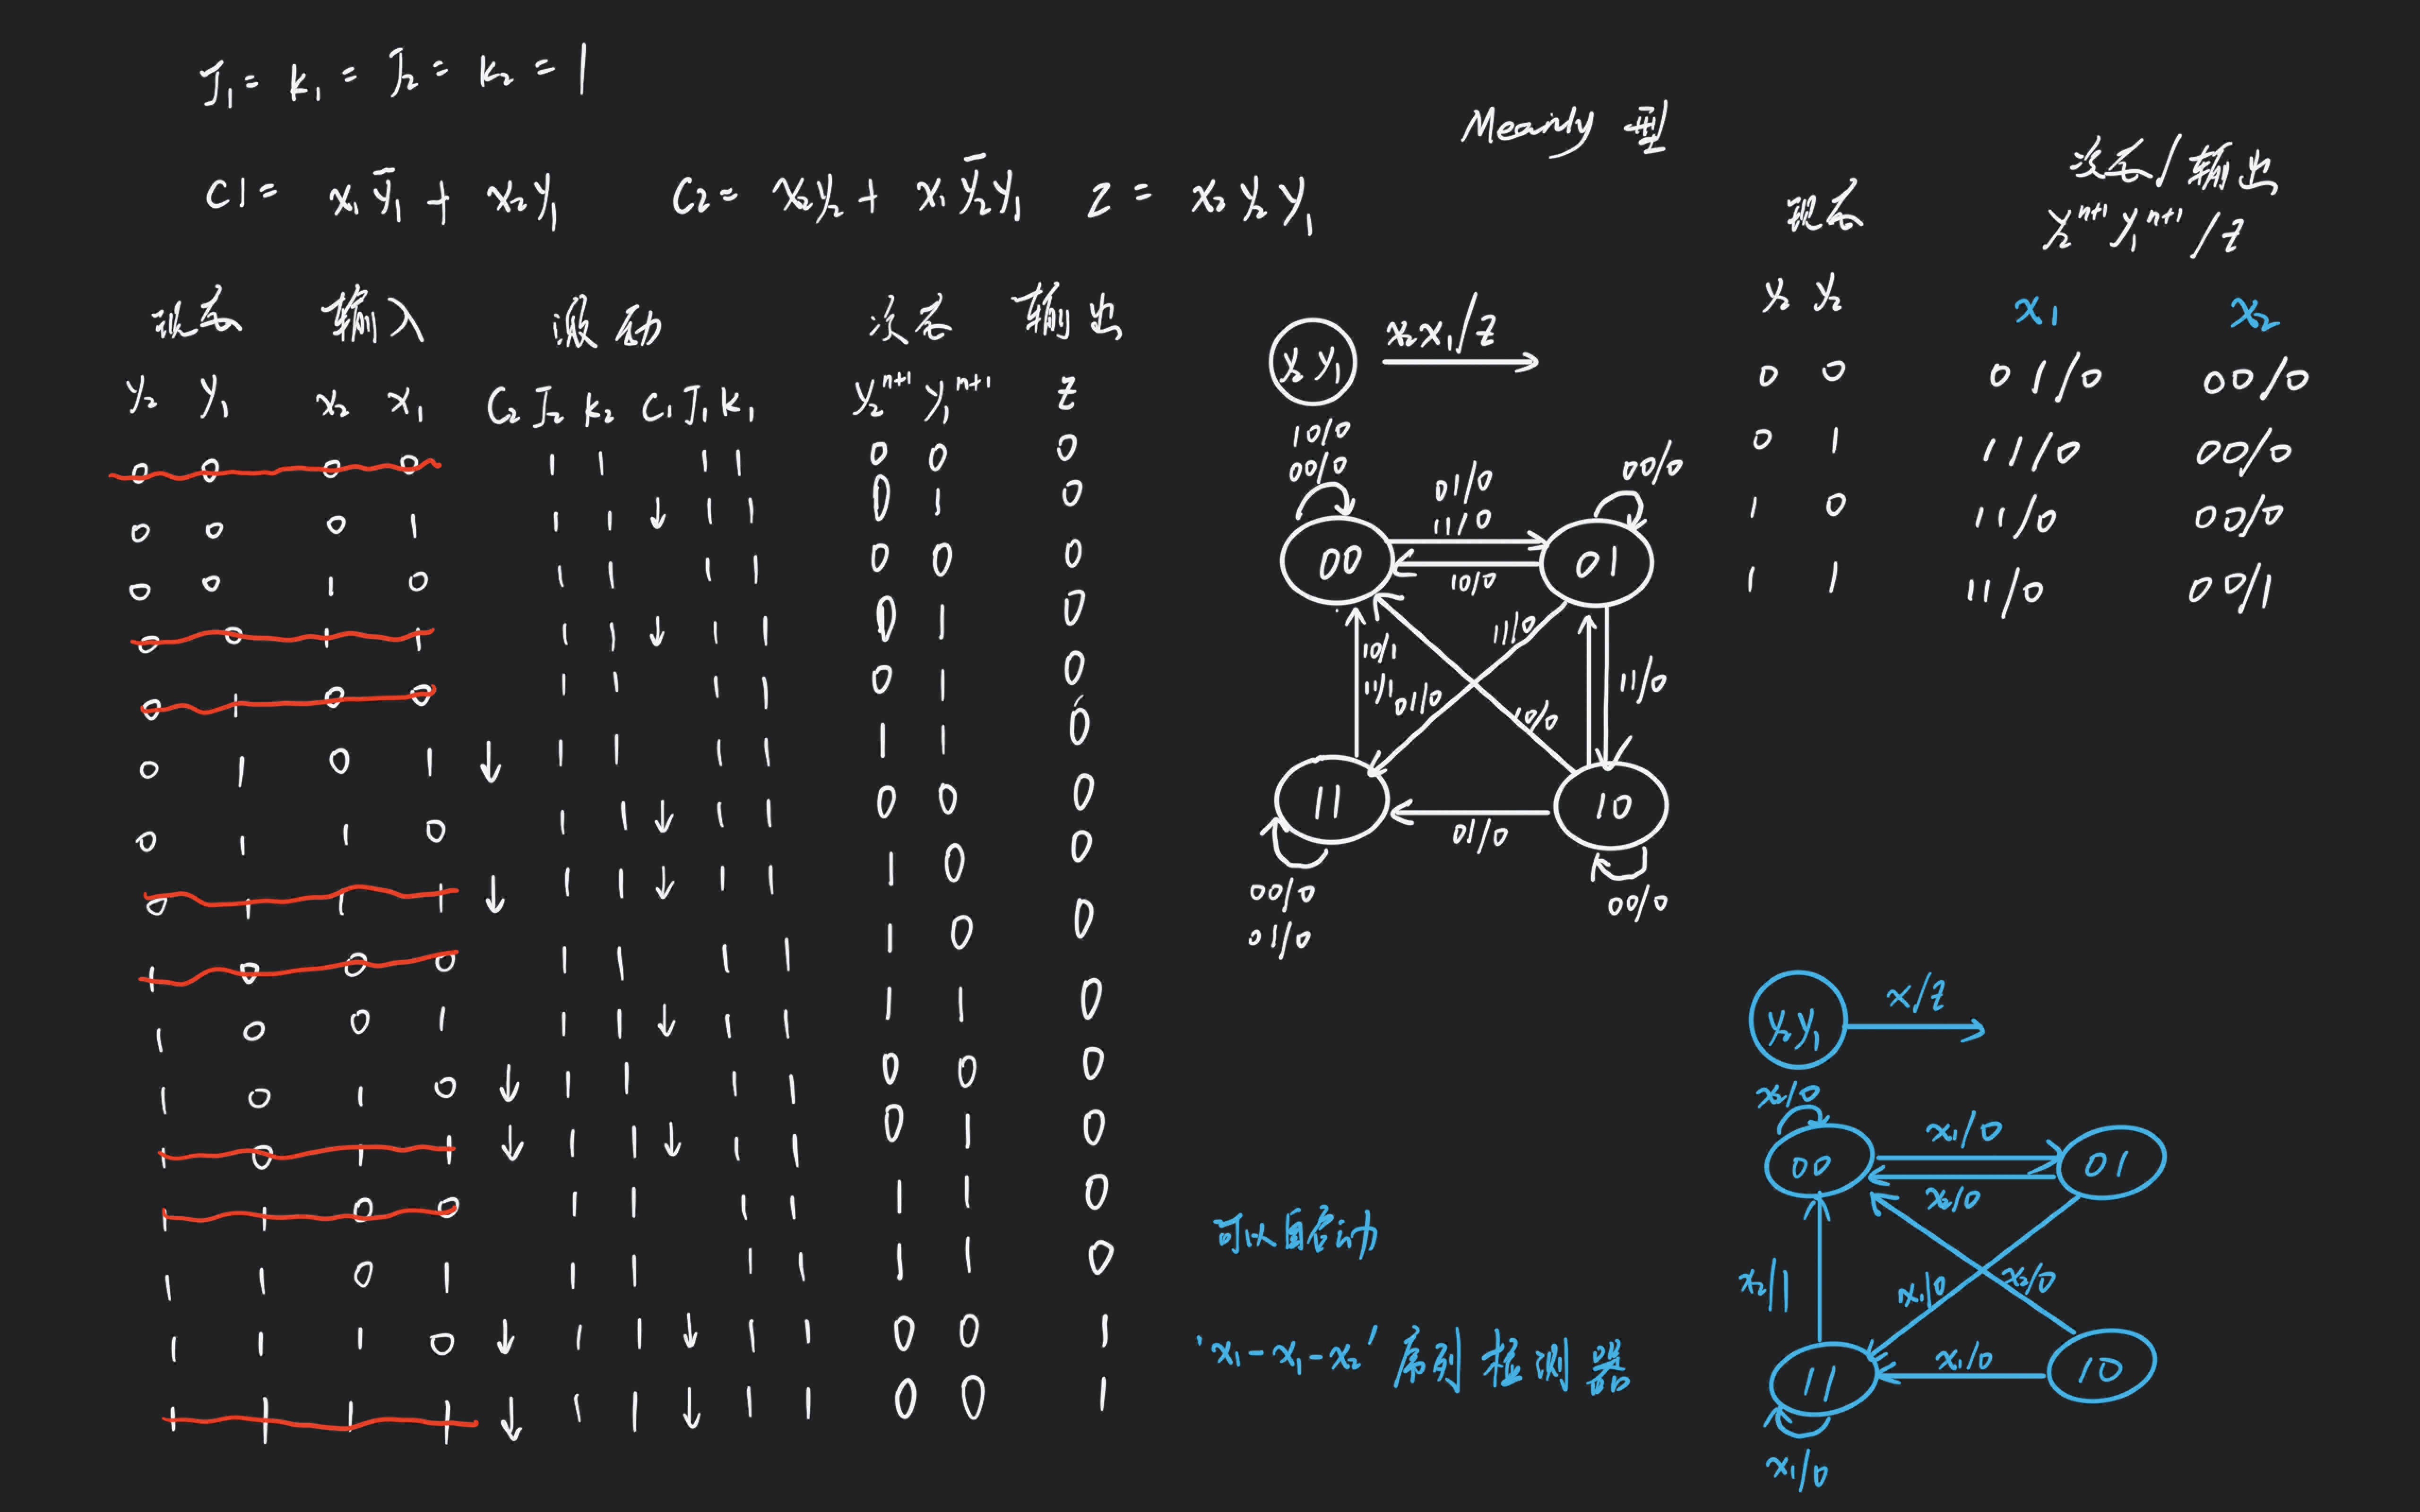 J₁ = K₁ = J₂ = K₂ = 1
Mearly 型
C1 = x₁ȳ₁ + x₂y₁ C2 = x₂y₂ + x₁ȳ₂y₁ Z = x₂y₂y₁
现态 输入 激励 次态 输出
y₂ y₁ x₂ x₁ C₂ J₂ K₂ C₁ J₁ K₁ y₂ⁿ⁺¹ y₁ⁿ⁺¹ Z
0 0 0 0 1 1 1 1 0 0 0
0 0 0 1 1 1 ↓ 1 1 0 1 0
0 0 1 0 1 1 1 1 0 0 0
0 0 1 1 1 1 ↓ 1 1 0 1 0
0 1 0 0 1 1 1 1 0 1 0
0 1 0 1 ↓ 1 1 1 1 1 1 0
0 1 1 0 1 1 ↓ 1 1 0 0 0
0 1 1 1 ↓ 1 1 ↓ 1 1 1 0 0
1 0 0 0 1 1 1 1 1 0 0
1 0 0 1 1 1 ↓ 1 1 1 1 0
1 0 1 0 ↓ 1 1 1 1 0 0 0
1 0 1 1 ↓ 1 1 ↓ 1 1 0 1 0
1 1 0 0 1 1 1 1 1 1 0
1 1 0 1 1 1 1 1 1 1 0
1 1 1 0 ↓ 1 1 ↓ 1 1 0 0 1
1 1 1 1 ↓ 1 1 ↓ 1 1 0 0 1
y₂y₁ x₂x₁/Z
10/0
00/0
01/0
11/0
00/0
00
01
10/0
10/1
11/1
11/0
01/0
10/0
11/0
11
10
01/0
00/0
01/0
00/0
次态/输出
现态 y₂ⁿ⁺¹y₁ⁿ⁺¹/Z
y₂ y₂ x₁ x₂
0 0 01/0 00/0
0 1 11/0 00/0
1 0 11/0 00/0
1 1 11/0 00/1
y₂y₁ x/Z
x₂/0
x₁/0
00
01
x₂/0
x₂/1
x₁/0
x₂/0
11
x₁/0
10
x₁/0
可以自启动
'x₁-x₁-x₂' 序列检测器